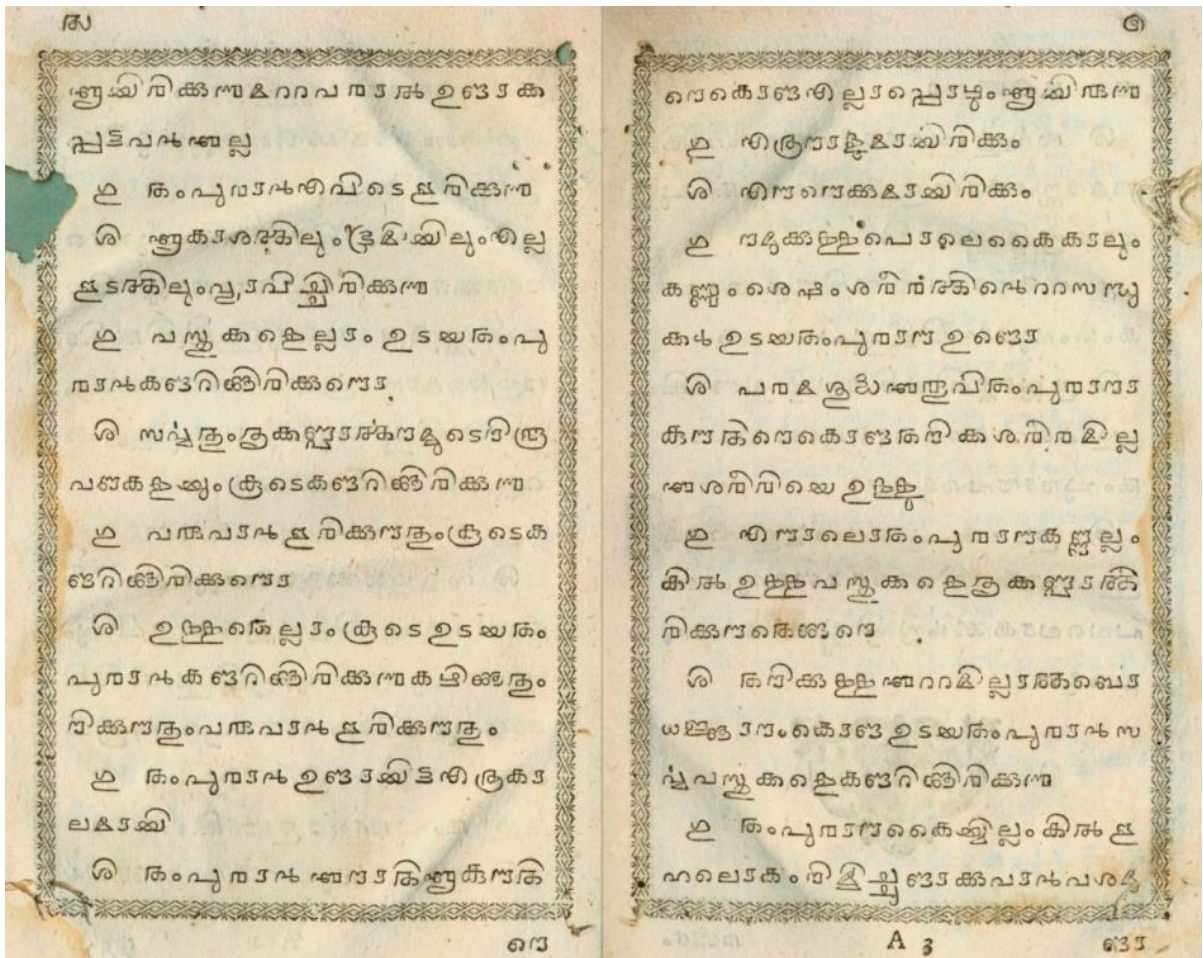 ൪
ആയിരിക്കുന്നമററവരാരാൽ ഉണ്ടാക
പ്പട്ടവൻഅല്ല
ഗു തംപുരാൻഎവിടെഇരിക്കുന്നു
ശി ആകാശത്തിലുംഭൂമിയിലുംഎല്ല
ഇടത്തിലുംവ്യാപിച്ചിരിക്കുന്നു
ഗു വസ്തുക്കളെല്ലാം ഉടയതംപു
രാൻകണ്ടറിഞ്ഞിരിക്കുന്നൊ
ശി സർവ്വതുംതൃക്കണ്പാൎത്തനമ്മുടെനിരൂ
പണകളയുംകൂടെകണ്ടറിഞ്ഞിരിക്കുന്നു
ഗു വരുവാൻ ഇരിക്കുന്നതുംകൂടെക
ണ്ടറിഞ്ഞിരിക്കുന്നൊ
ശി ഉള്ളതെല്ലാംകൂടെ ഉടയതം
പുരാൻകണ്ടറിഞ്ഞിരിക്കുന്നുകഴിഞ്ഞതും
നിക്കുന്നതുംവരുവാൻ ഇരിക്കുന്നതും
ഗു തംപുരാൻ ഉണ്ടായിട്ടഎത്രകാ
ലമായി
ശി തംപുരാൻ അനാതിആകുന്നതി
നെ
൫
നെകൊണ്ടഎല്ലാപ്പൊഴുംആയിരുന്നു
ഗു എത്രനാളുമായിരിക്കും
ശി എന്നെക്കുമായിരിക്കും
ഗു നമുക്കുള്ളപൊലെകൈകാലും
കണ്ണുംശെഷംശരീരത്തിന്റെറസന്ധു
ക്കൾ ഉടയതംപുരാന ഉണ്ടൊ
ശി പരമശുദ്ധഅരൂപിതംപുരാനാ
കുന്നതിനെകൊണ്ടതനിക്കശരീരമില്ല
അശരീരിയെ ഉള്ളു
ഗു എന്നാലൊതംപുരാനകണ്ണില്ലം
കിൽ ഉള്ളവസ്തുക്കളെതൃക്കണ്പാൎത്തി
രിക്കുന്നതെങ്ങനെ
ശി തനിക്കുള്ളഅററമില്ലാത്തബൊ
ധജ്ഞാനംകൊണ്ട ഉടയതംപുരാൻസ
ർവ്വവസ്തുക്കളെകണ്ടറിഞ്ഞിരിക്കുന്നു
ഗു തംപുരാനകൈയ്യില്ലംകിൽ ഇ
ഹലൊകംനിമിച്ചുണ്ടാക്കുവാൻവശമു
A 3
ണ്ടൊ